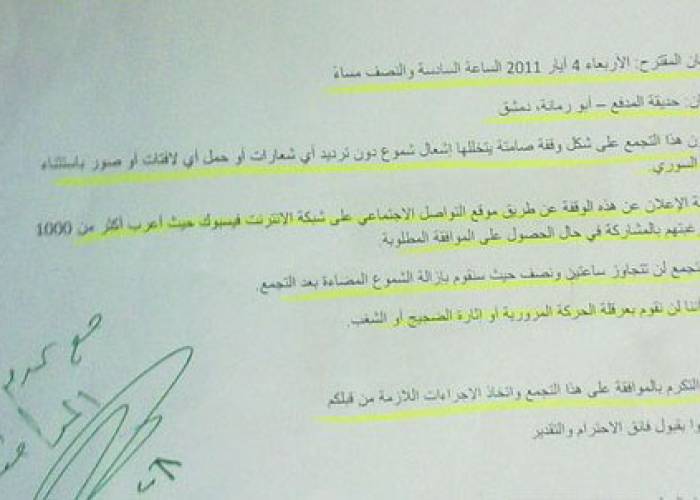 ان المقترح: الأربعاء 4 أيار 2011 الساعة السادسة والنصف مساءً
ان: حديقة المدفع – أبو رمانة، دمشق
ن هذا التجمع على شكل وقفة صامتة يتخللها إشعال شموع دون ترديد أي شعارات أو حمل أي لافتات أو صور باستثناء
السوري.
ة الإعلان عن هذه الوقفة عن طريق موقع التواصل الاجتماعي على شبكة الانترنت فيسبوك حيث أعرب أكثر من 1000
غبتهم بالمشاركة في حال الحصول على الموافقة المطلوبة.
تجمع لن تتجاوز ساعتين ونصف حيث سنقوم بازالة الشموع المضاءة بعد التجمع.
أننا لن نقوم بعرقلة الحركة المرورية أو إثارة الضجيج أو الشغب.
التكرم بالموافقة على هذا التجمع واتخاذ الاجراءات اللازمة من قبلكم
وا بقبول فائق الاحترام والتقدير
مع عدم